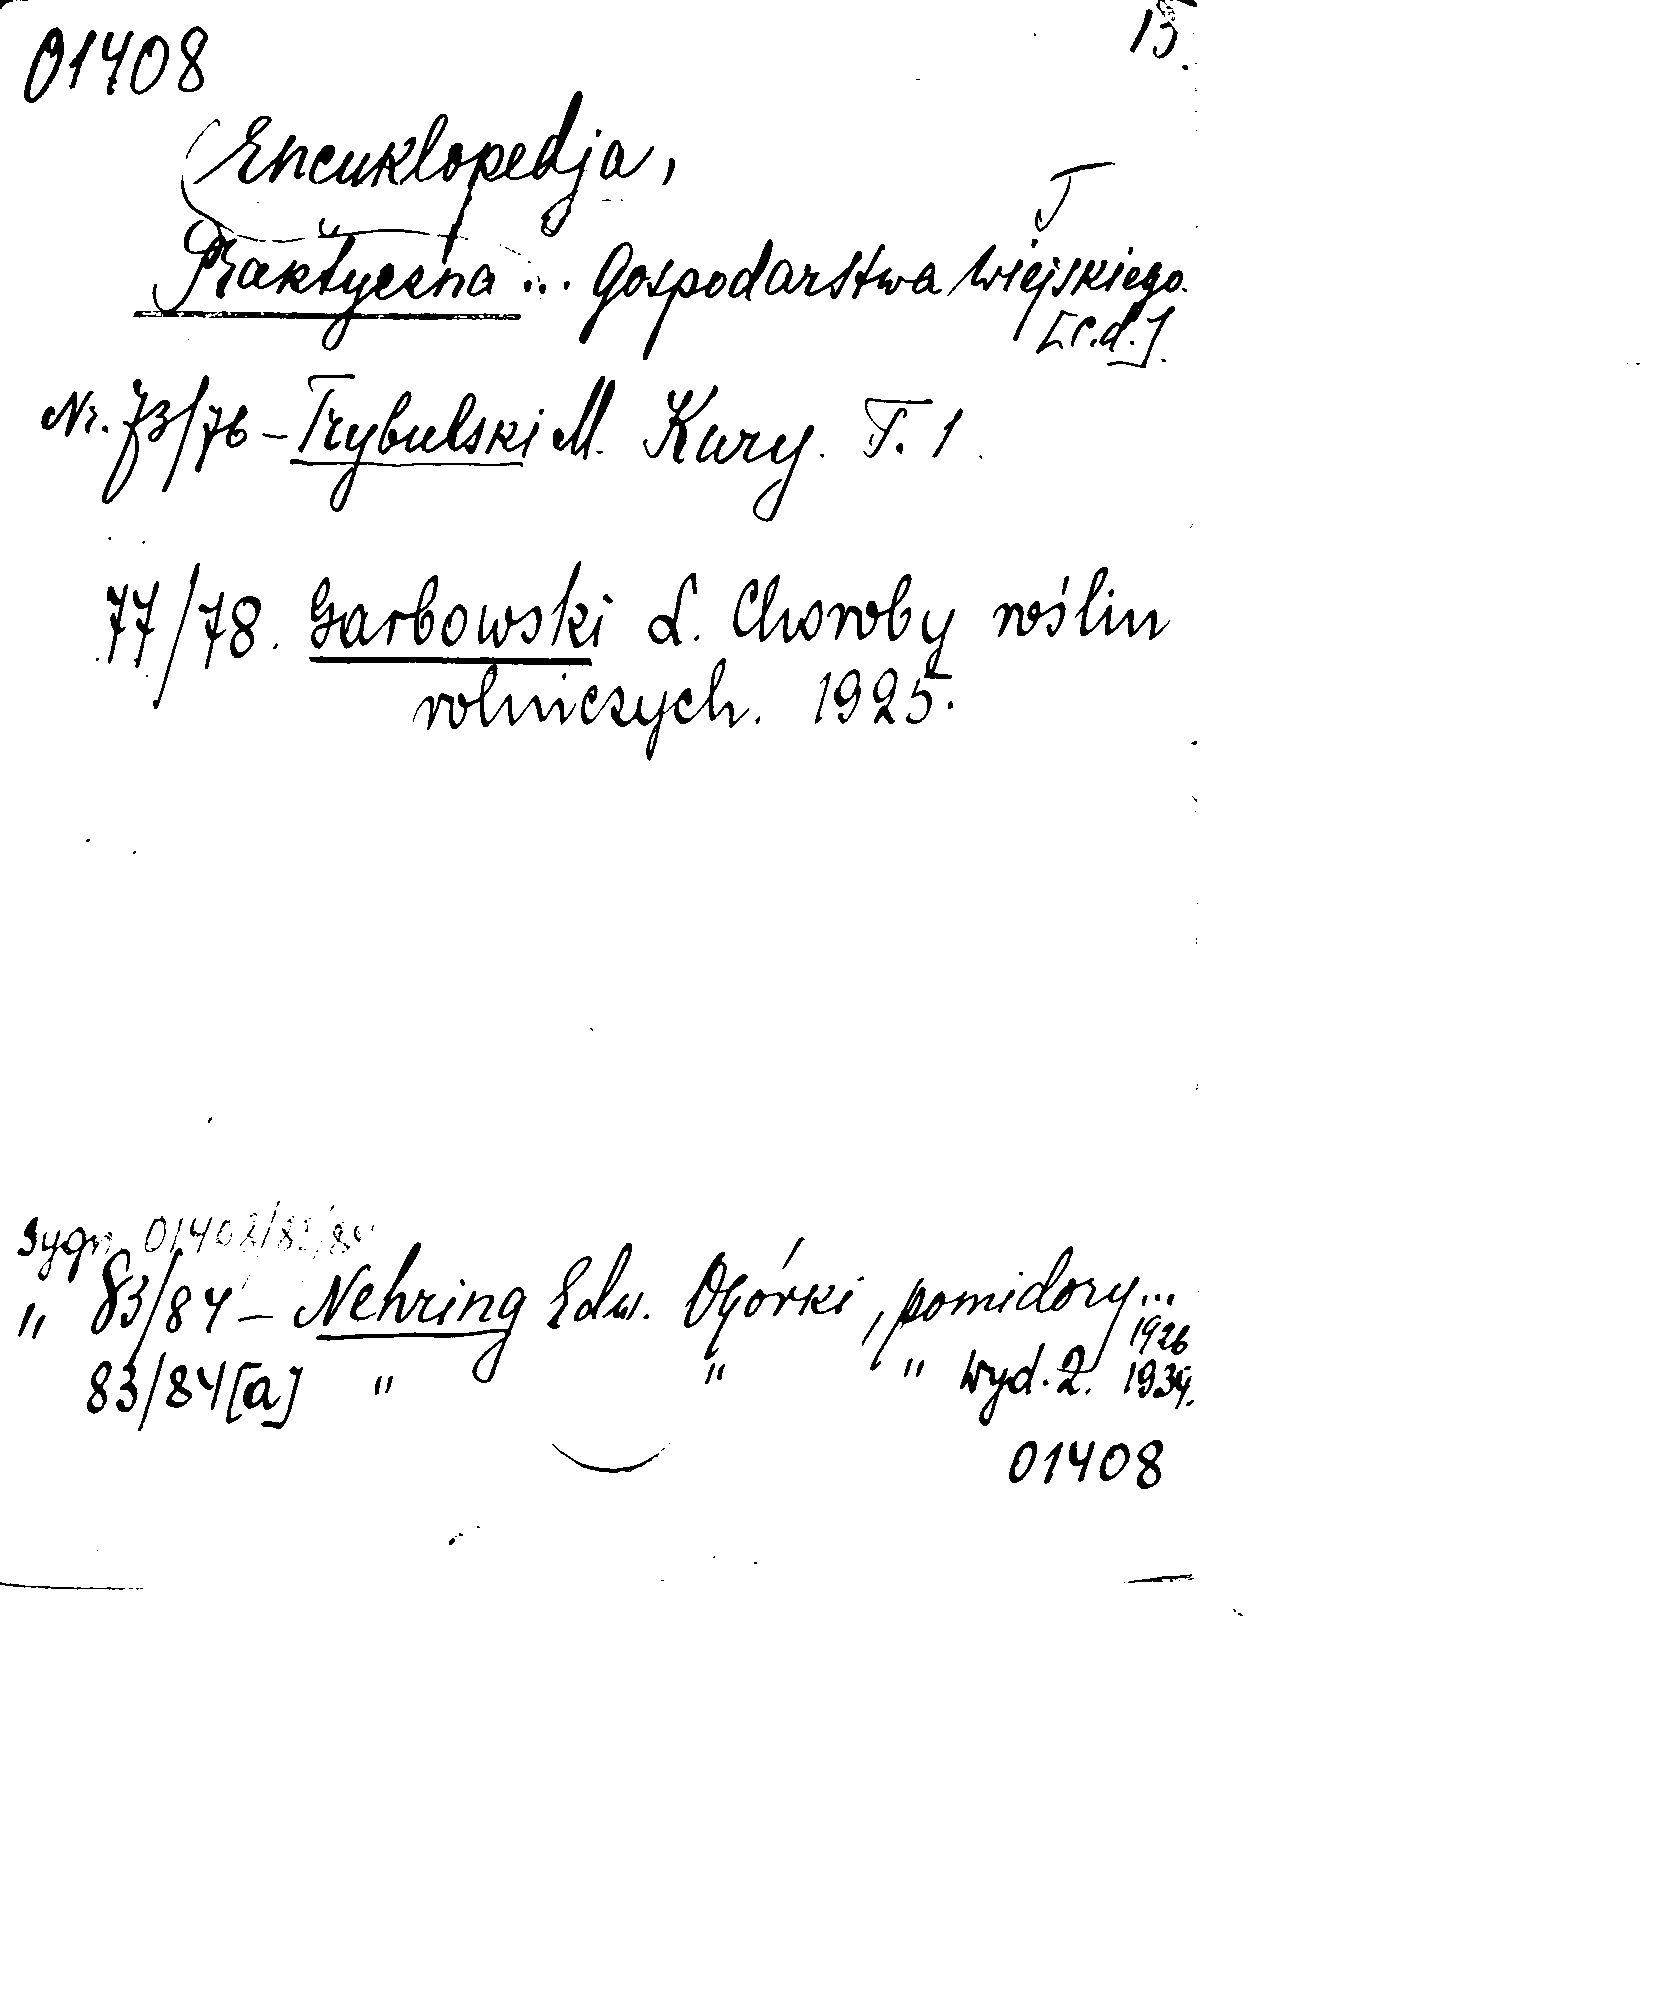 01408
15.
Encyklopedja,
T
Praktyczna ... Gospodarstwa Wiejskiego.
[c.d.].
Nr. 73/76 – Trybulski M. Kury. T. 1.
77/78. Garbowski L. Choroby roślin
rolniczych. 1925.
Sygn. 01408/83/84
" 83/84 – Nehring Edw. Ogórki, pomidory...
1926
83/84[a] " " " Wyd. 2. 1934.
01408